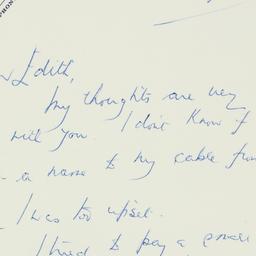 Edith,
My thoughts are very
with you. I don't know if
a name to my cable from
I was too upset.
I tried to pay a